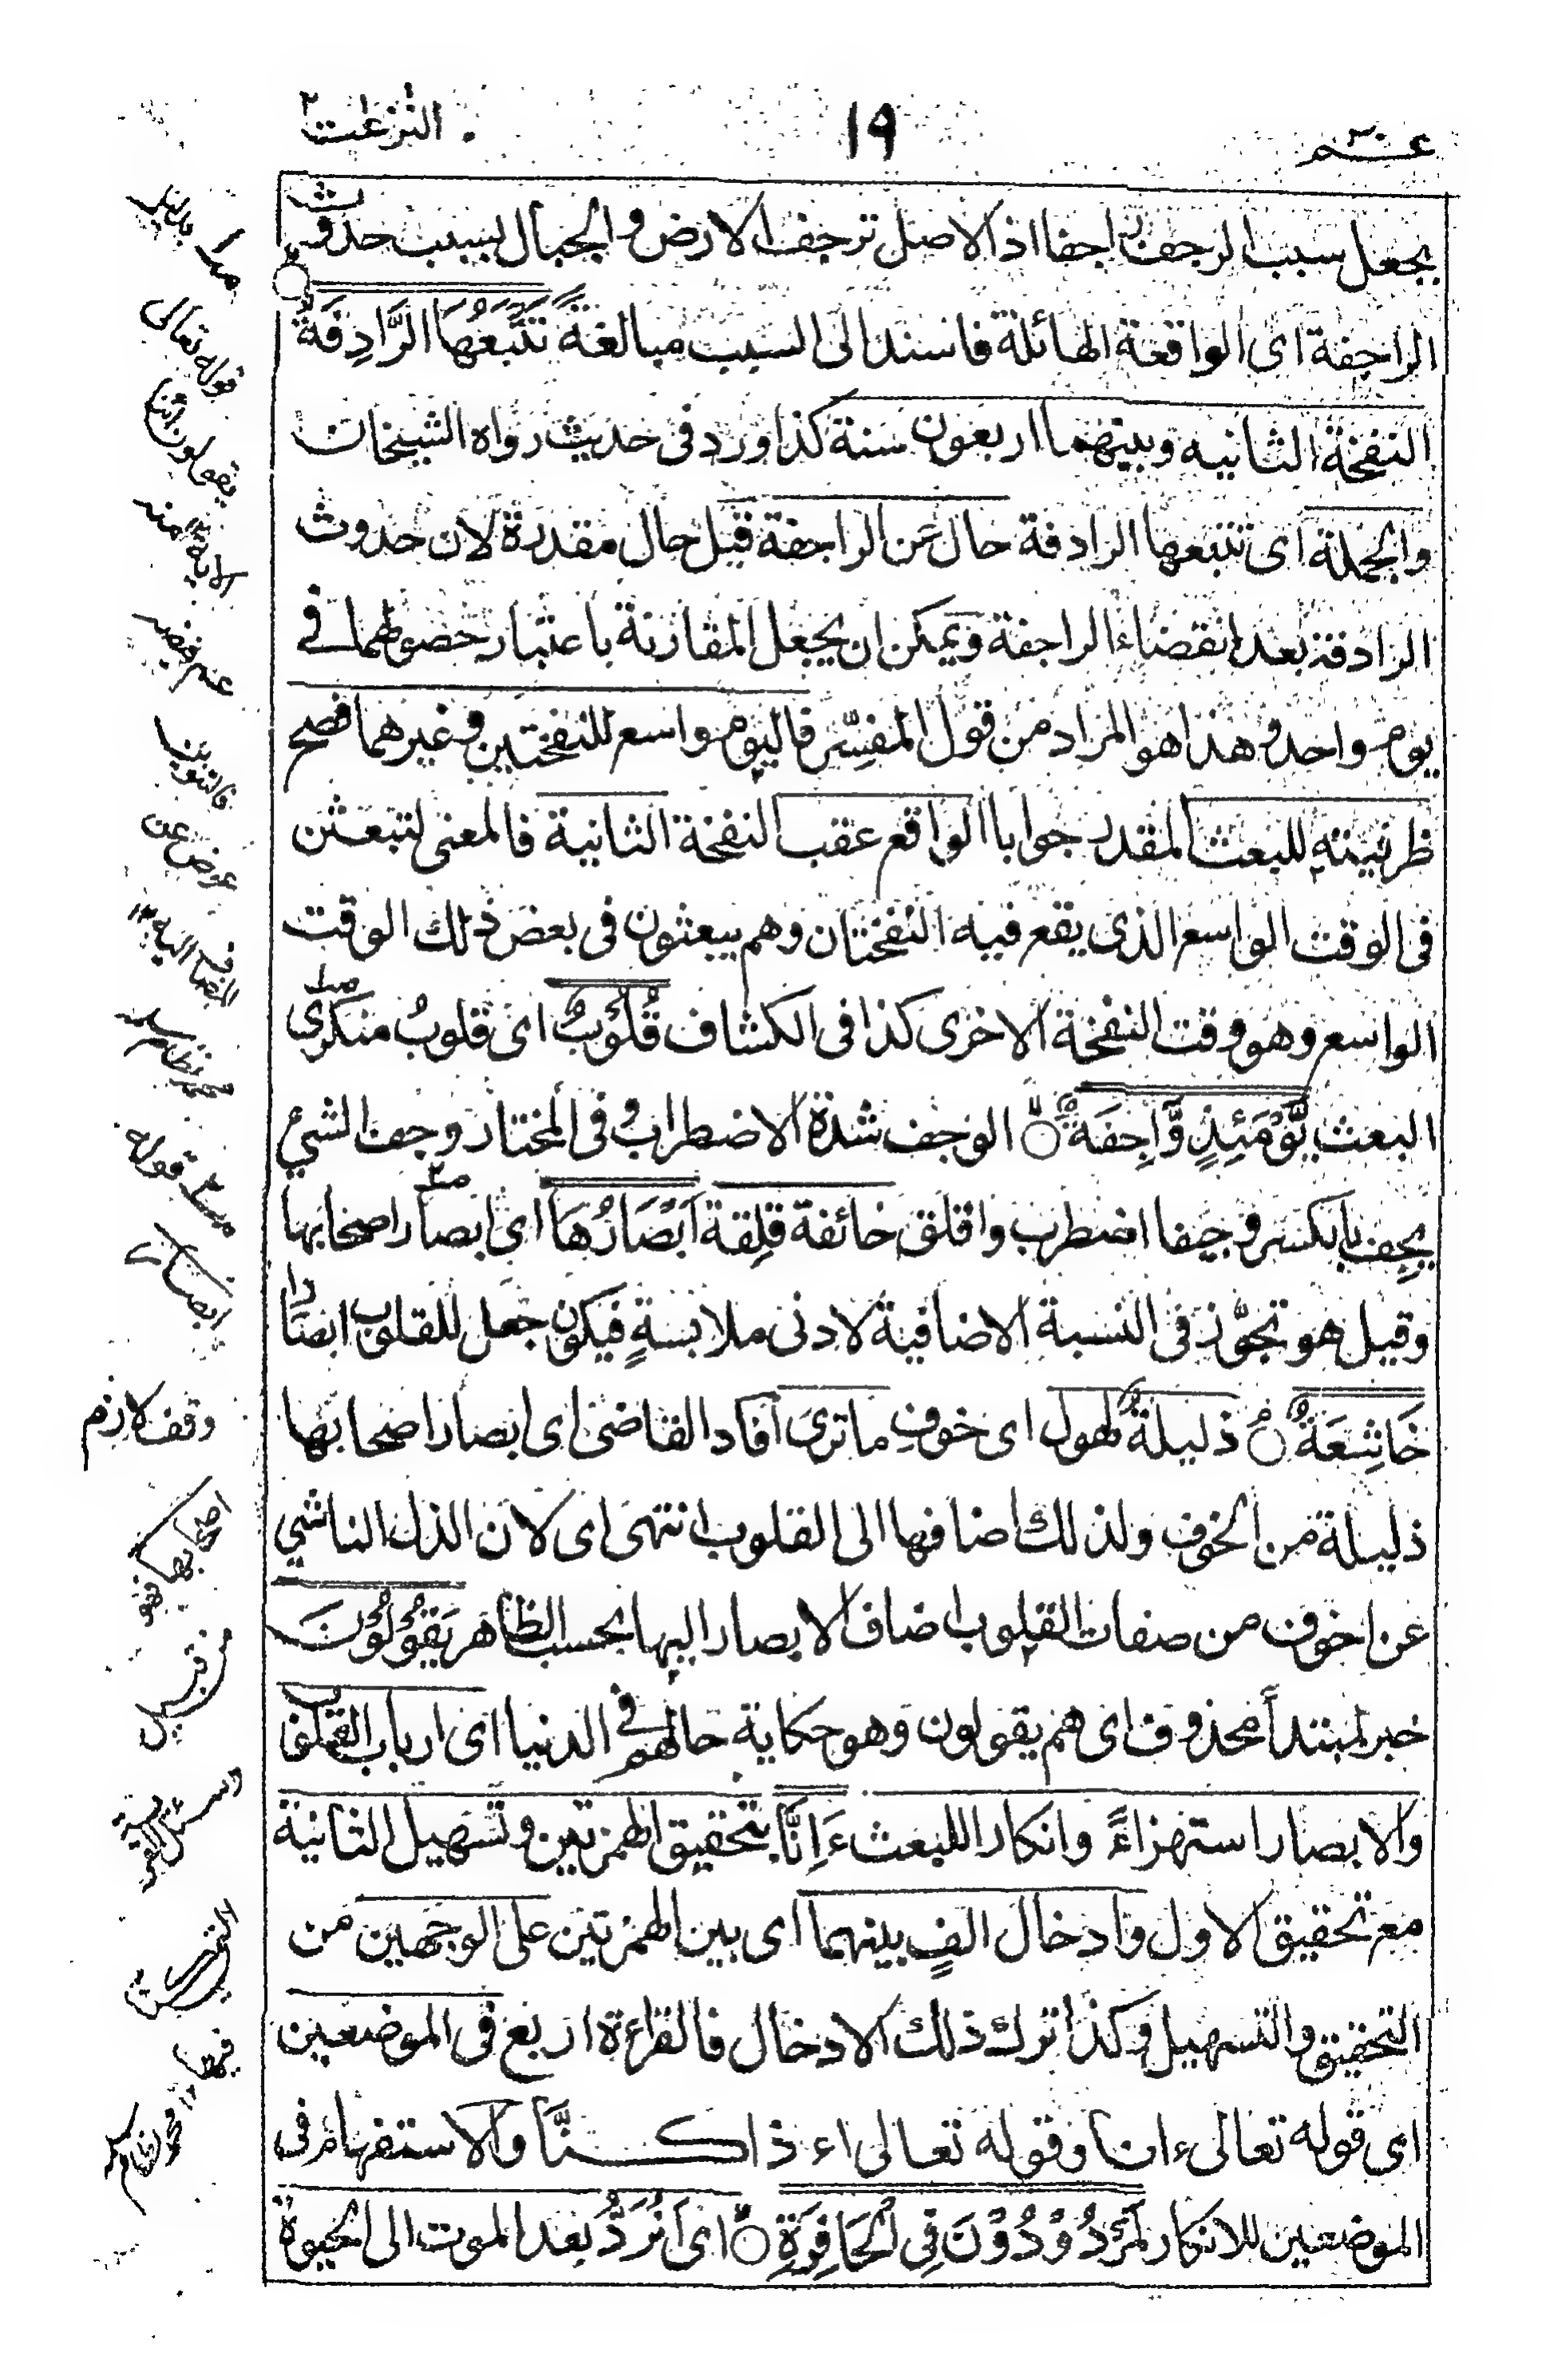 عـــم ٣٠
١٩
النزعت ٢
يجعل سبب الرجف راجفا اذ الاصل ترجف الارض والجبال بسبب حدوث
الراجفة اى الواقعة الهائلة فاسند الى السبب مبالغة تَتْبَعُهَا الرَّادِفَةُ
النفخة الثانيه وبينهما اربعون سنة كذا ورد فى حديث رواه الشيخان
والجملة اى تتبعها الرادفة حال من الراجفة قيل حال مقدرة لان حدوث
الرادفة بعد انقضاء الراجفة ويمكن ان يجعل المقارنة باعتبار حصولهما فے
يوم واحد وهذا هو المراد من قول المفسّر فاليوم واسع للنفختين وغيرهما فصح
ظرفيته للبعث المقدر جوابا الواقع عقب النفخة الثانية فالمعنى لتبعثن
فى الوقت الواسع الذى يقع فيه النفختان وهم يبعثون فى بعض ذلك الوقت
الواسع وهو وقت النفخة الاخرى كذا فى الكشاف قُلُوْبٌ اى قلوبُ منكرى
البعث يَّوْمَئِذٍ وَّاجِفَةٌ الوجف شدة الاضطراب وفى المختار وجف الشئ
يجِف بالكسر وجيفا اضطرب واقلق خائفة قلِقة اَبْصَارُهَا اى ابصار اصحابها
وقيل هو تجوّز فى النسبة الاضافية لادنى ملابسةٍ فيكون جعل للقلوب ابصارا
خَاشِعَةٌ ذليلةٌ لهول اى خوفِ ماترى افاد القاضى اى ابصار اصحابها
ذليلة من الخوف ولذلك اضافها الى القلوب انتهى اى لان الذل الناشى
عن الخوف من صفات القلوب اضاف الابصار اليها بحسب الظاهر يَقُوْلُوْنَ
خبر لمبتدأ محذوف اى هم يقولون وهو حكاية حالهم فى الدنيا اى ارباب القلوب
والابصار استهزاءً وانكارا للبعث ءَاِنَّا بتحقيق الهمزتين وتسهيل الثانية
مع تحقيق الاول وادخال الفٍ بينهما اى بين الهمزتين على الوجهين من
التحقيق والتسهيل وكذا ترك ذلك الادخال فالقراءة اربع فى الموضعين
اى قوله تعالى ءانا وقوله تعالى اءذا كـــنَّا والاستفهام فى
الموضعين للانكار لَمَرْدُوْدُوْنَ فِى الْحَافِرَةِ اى اَنُرَدُّ بعد الموت الى الحيوة
قوله تعالى
الاية ١٢ منه
فالتنوين
عوض عن
المضاف اليه ١٢
قوله
ابصار
وقف لازم
اصحابها فهو
من قبيل
فيها ١٢